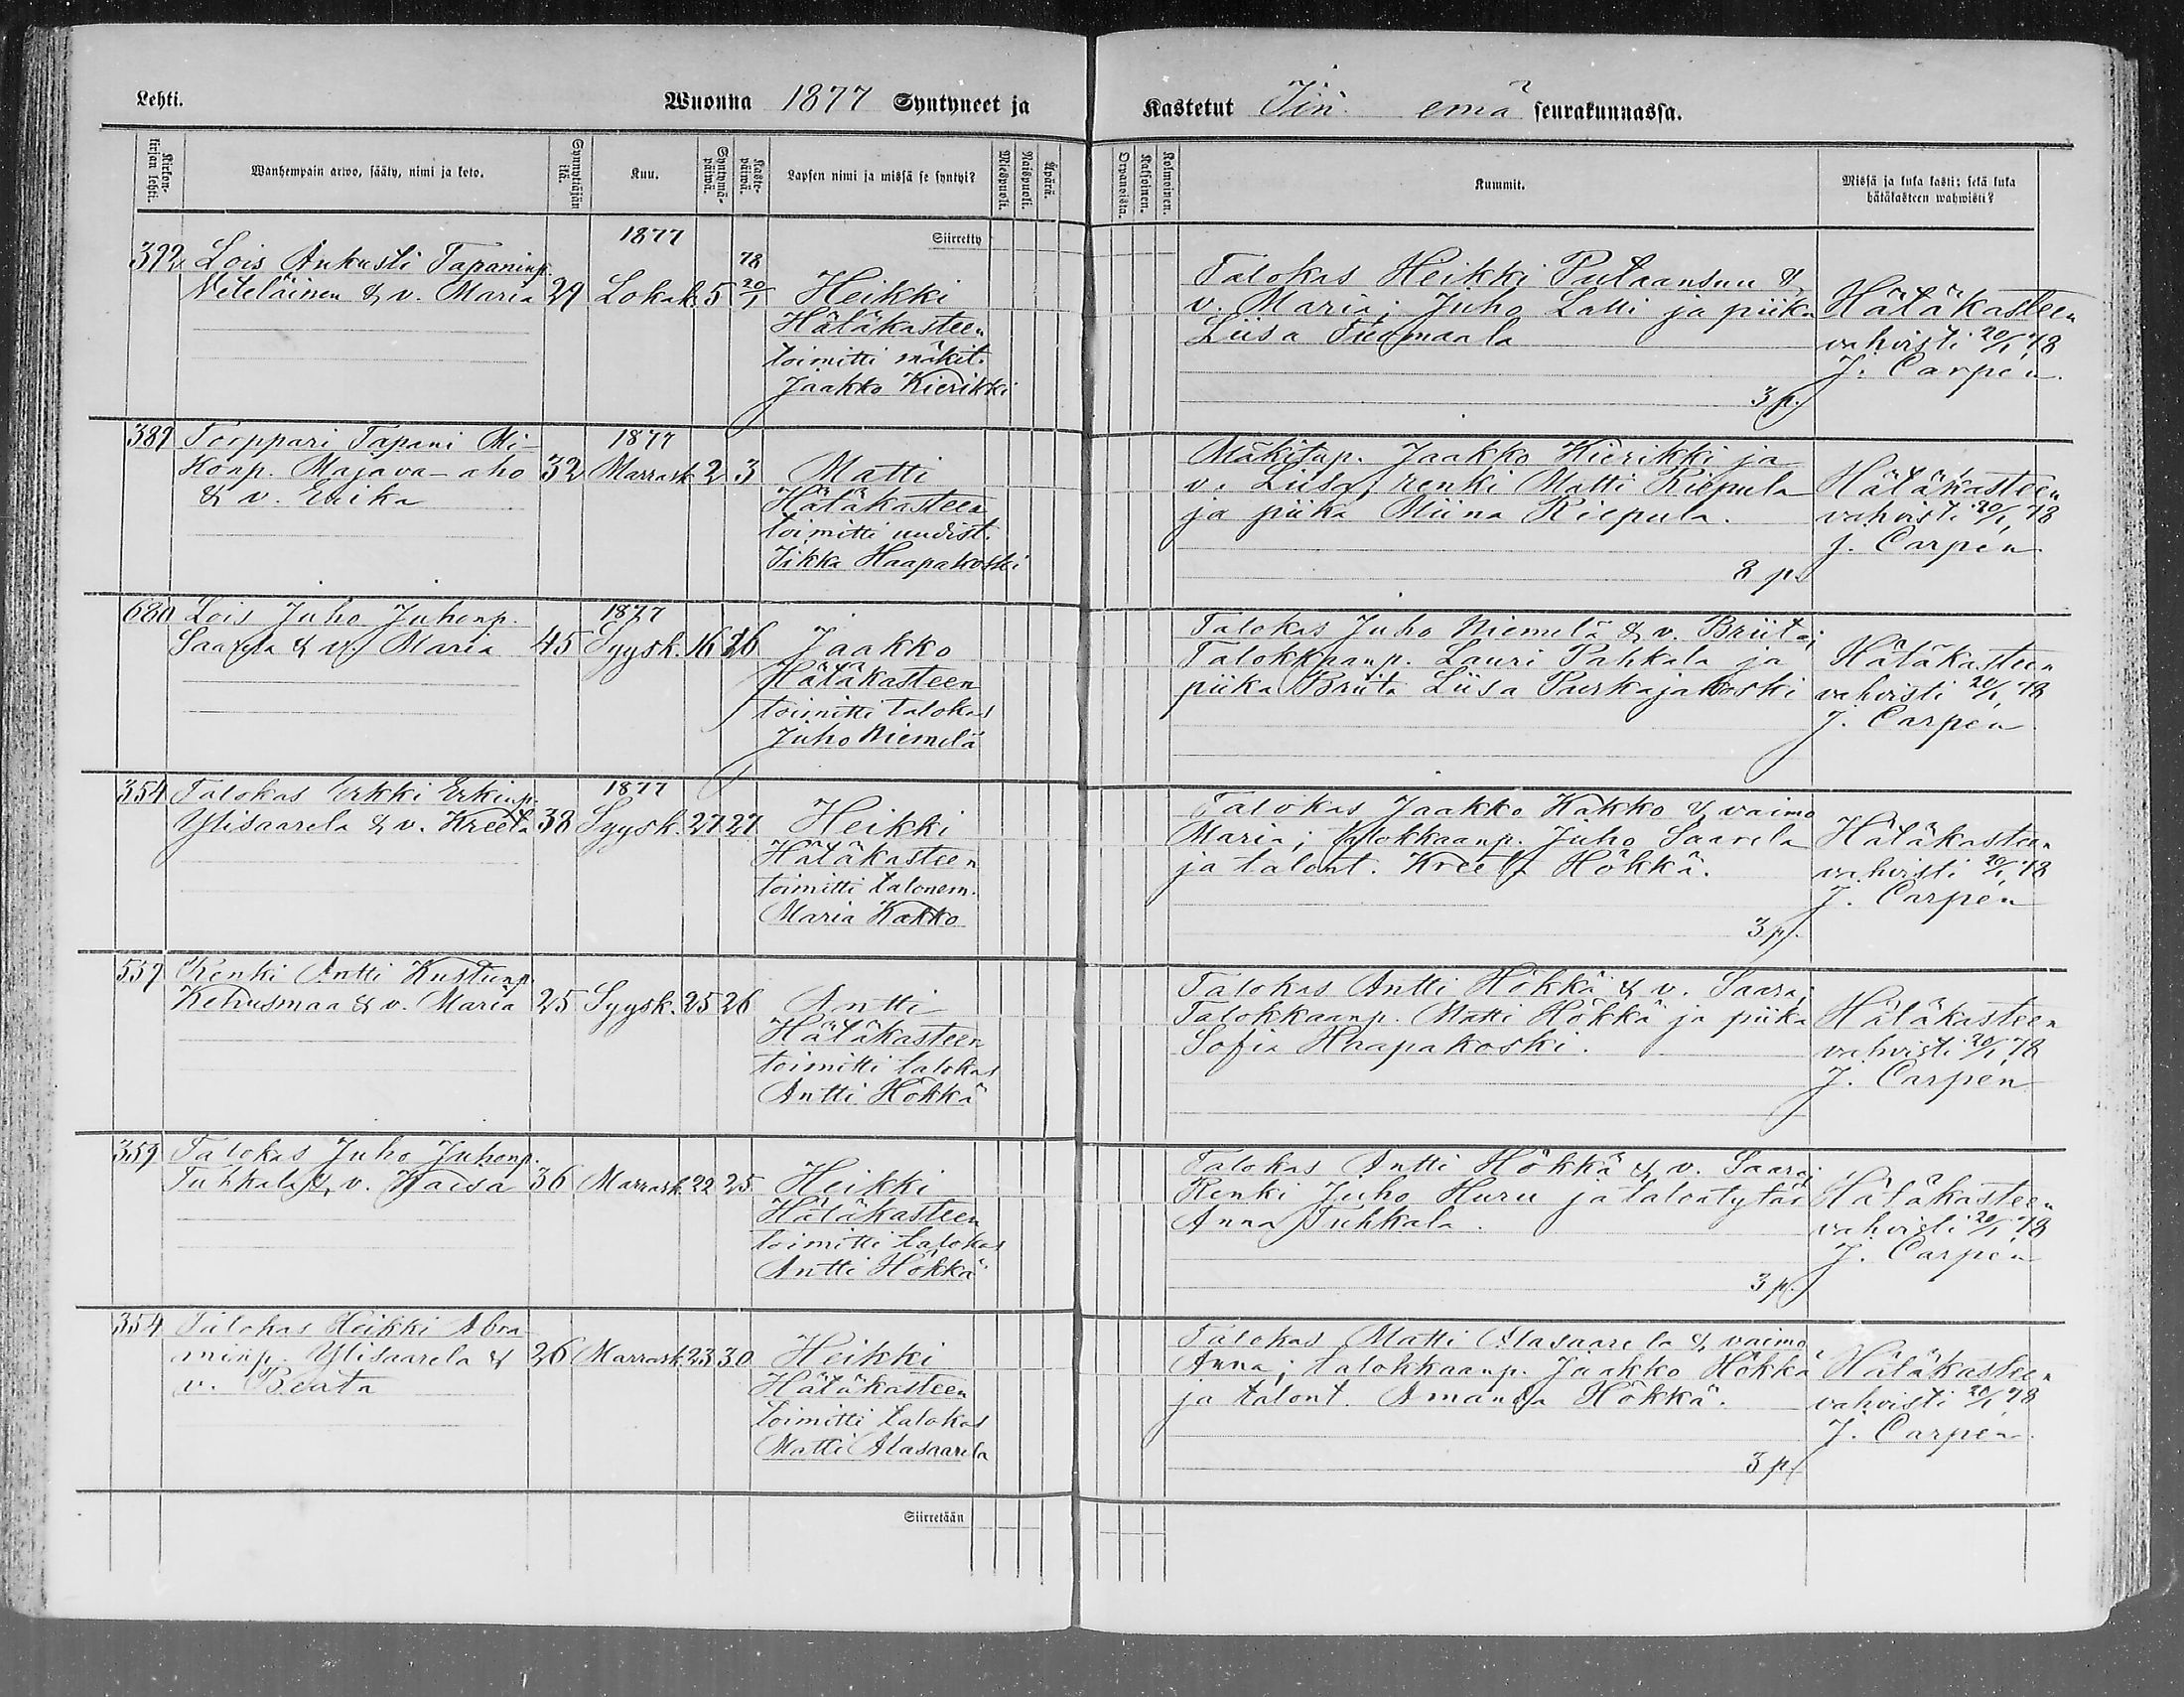 Lehti.
Wuonna 1877 Syntyneet ja
Kastetut Iin emä seurakunnassa.
Kirkon-
kirjan lehti.
Wanhempain arwo, sääty, nimi ja koto.
Synnyttäjän
ikä.
Kuu.
Syntymä-
päiwä.
Kaste-
päiwä.
Lapsen nimi ja missä se syntyi?
Miespuoli.
Naispuoli.
Äpärä.
Orpanoista.
Kaksoinen.
Kolmoinen.
Kummit.
Missä ja kuka kasti; sekä kuka
hätäkasteen wahwisti?
Siirretty
1877
78
392 Lois Aukusti Tapaninp.
Neteläinen & v. Maria 29 Lokak. 5 20/1 Heikki
Hätäkasteen
toimitti mäkit.
Jaakko Kierikki
Talokas Heikki Putaansuu &
v. Maria; Juho Latti ja piika
Liisa Tuomaala
3 p.
Hätäkasteen
vahvisti 20/1 78
J. Carpén.
389 Torppari Tapani Mi-
konp. Majava-aho
& v. Eerika
1877
32 Marrask. 2 3 Matti
Hätäkasteen
toimitti uudist.
Iikka Haapakoski
Mäkitup. Jaakko Kierikki ja
v. Liisa; renki Matti Riepula
ja piika Miina Riepula.
3 p.
Hätäkasteen
vahvisti 20/1 78
J. Carpén.
680 Lois Juho Juhonp.
Saarela & v. Maria
1877
45 Syysk. 16 26 Jaakko
Hätäkasteen
toimitti talokas
Juho Niemelä
Talokas Juho Niemelä & v. Briita;
Talokkaanp. Lauri Pahkala ja
piika Briita Liisa Purkajakoski
Hätäkasteen
vahvisti 20/1 78
J. Carpén
354 Talokas Erkki Erkinp.
Ylisaarela & v. Kreeta
1877
38 Syysk. 27 27 Heikki
Hätäkasteen
toimitti talonem.
Maria Kakko
Talokas Jaakko Kakko & vaimo
Maria; talokkaanp. Juho Saarela
ja talont. Kreeta Hökkä.
3 p.
Hätäkasteen
vahvisti 20/1 78
J. Carpén
559 Renki Antti Kustunp.
Kehusmaa & v. Maria 25 Syysk. 25 26 Antti
Hätäkasteen
toimitti talokas
Antti Hökkä
Talokas Antti Hökkä & v. Saara;
Talokkaanp. Matti Hökkä ja piika
Sofia Haapakoski.
Hätäkasteen
vahvisti 20/1 78
J. Carpén
359 Talokas Juho Juhonp.
Tuhkala & v. Kaisa 36 Marrask. 22 25 Heikki
Hätäkasteen
toimitti talokas
Antti Hökkä
Talokas Antti Hökkä & v. Saara;
Renki Juho Huru ja talontytär
Anna Tuhkala.
3 p.
Hätäkasteen
vahvisti 20/1 78
J. Carpén
354 Talokas Heikki Abra-
minp. Ylisaarela &
v. Beata
26 Marrask. 23 30 Heikki
Hätäkasteen
toimitti talokas
Matti Alasaarela
Talokas Matti Alasaarela & vaimo
Anna; talokkaanp. Jaakko Hökkä
ja talont. Amanda Hökkä.
3 p.
Hätäkasteen
vahvisti 20/1 78
J. Carpén.
Siirretään